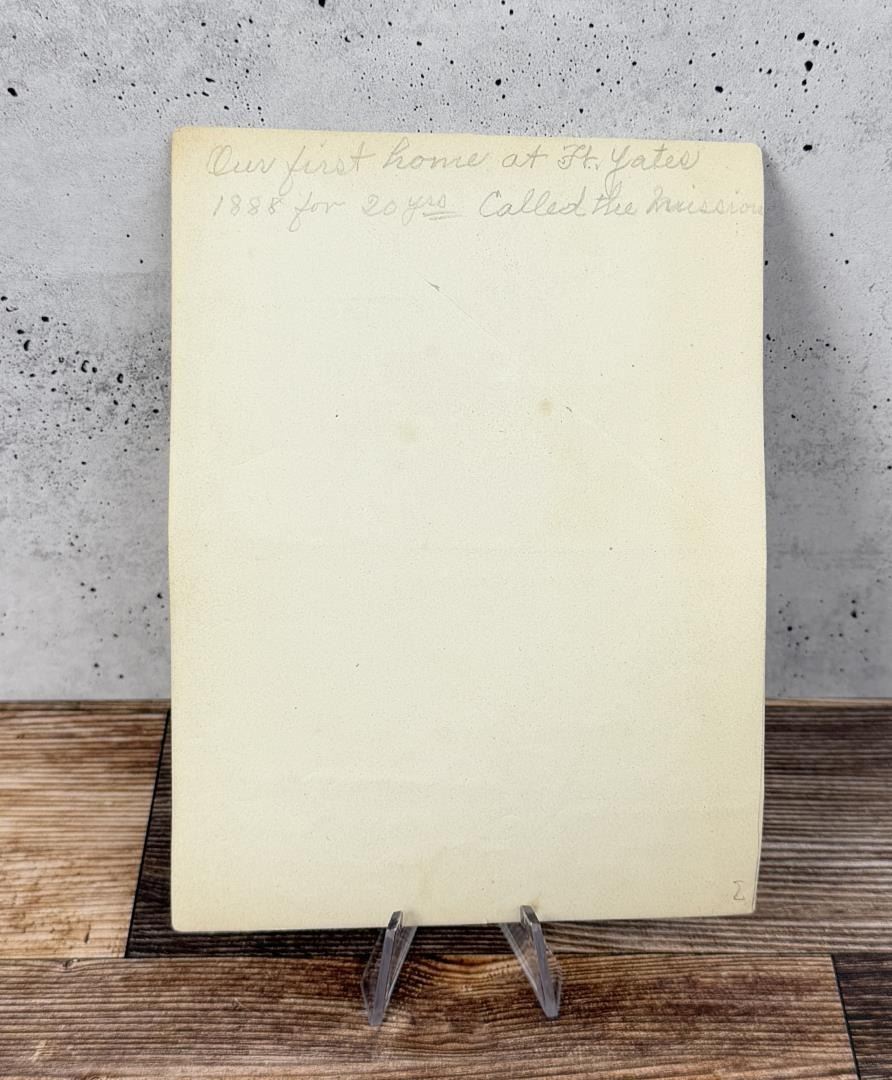 Our first home at Ft. Yates
1888 for 20 yrs Called the Mission
Σ